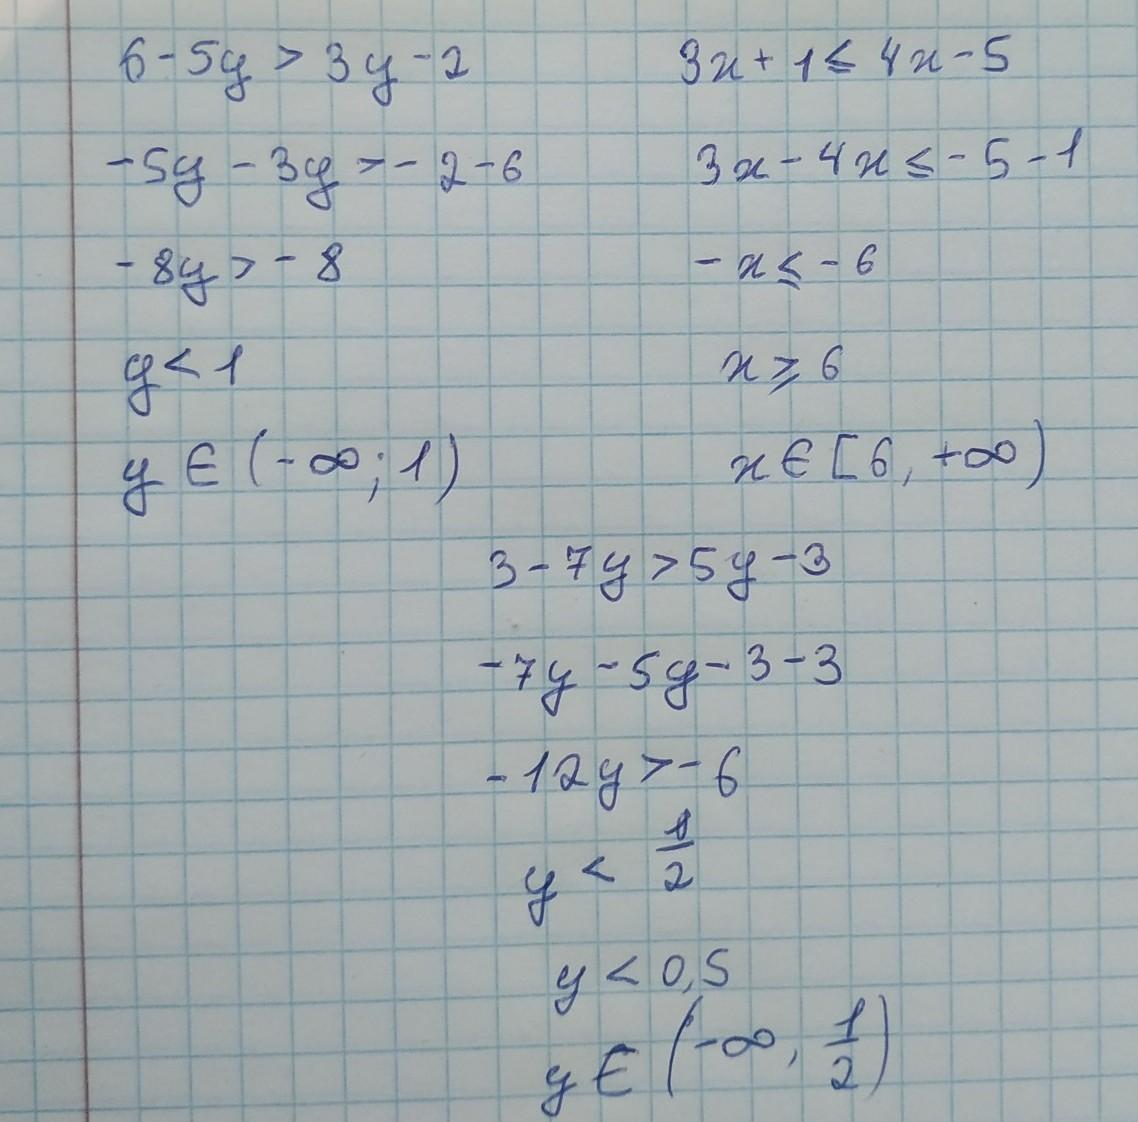 6-5y > 3y-2
-5y - 3y > - 2-6
-8y > - 8
y < 1
y ∈ (-∞; 1)
3x + 1 ≤ 4x - 5
3x - 4x ≤ - 5 - 1
- x ≤ - 6
x ≥ 6
x ∈ [6, +∞)
3 - 7y > 5y - 3
-7y - 5y - 3 - 3
-12y > - 6
y < 1/2
y < 0,5
y ∈ (-∞, 1/2)